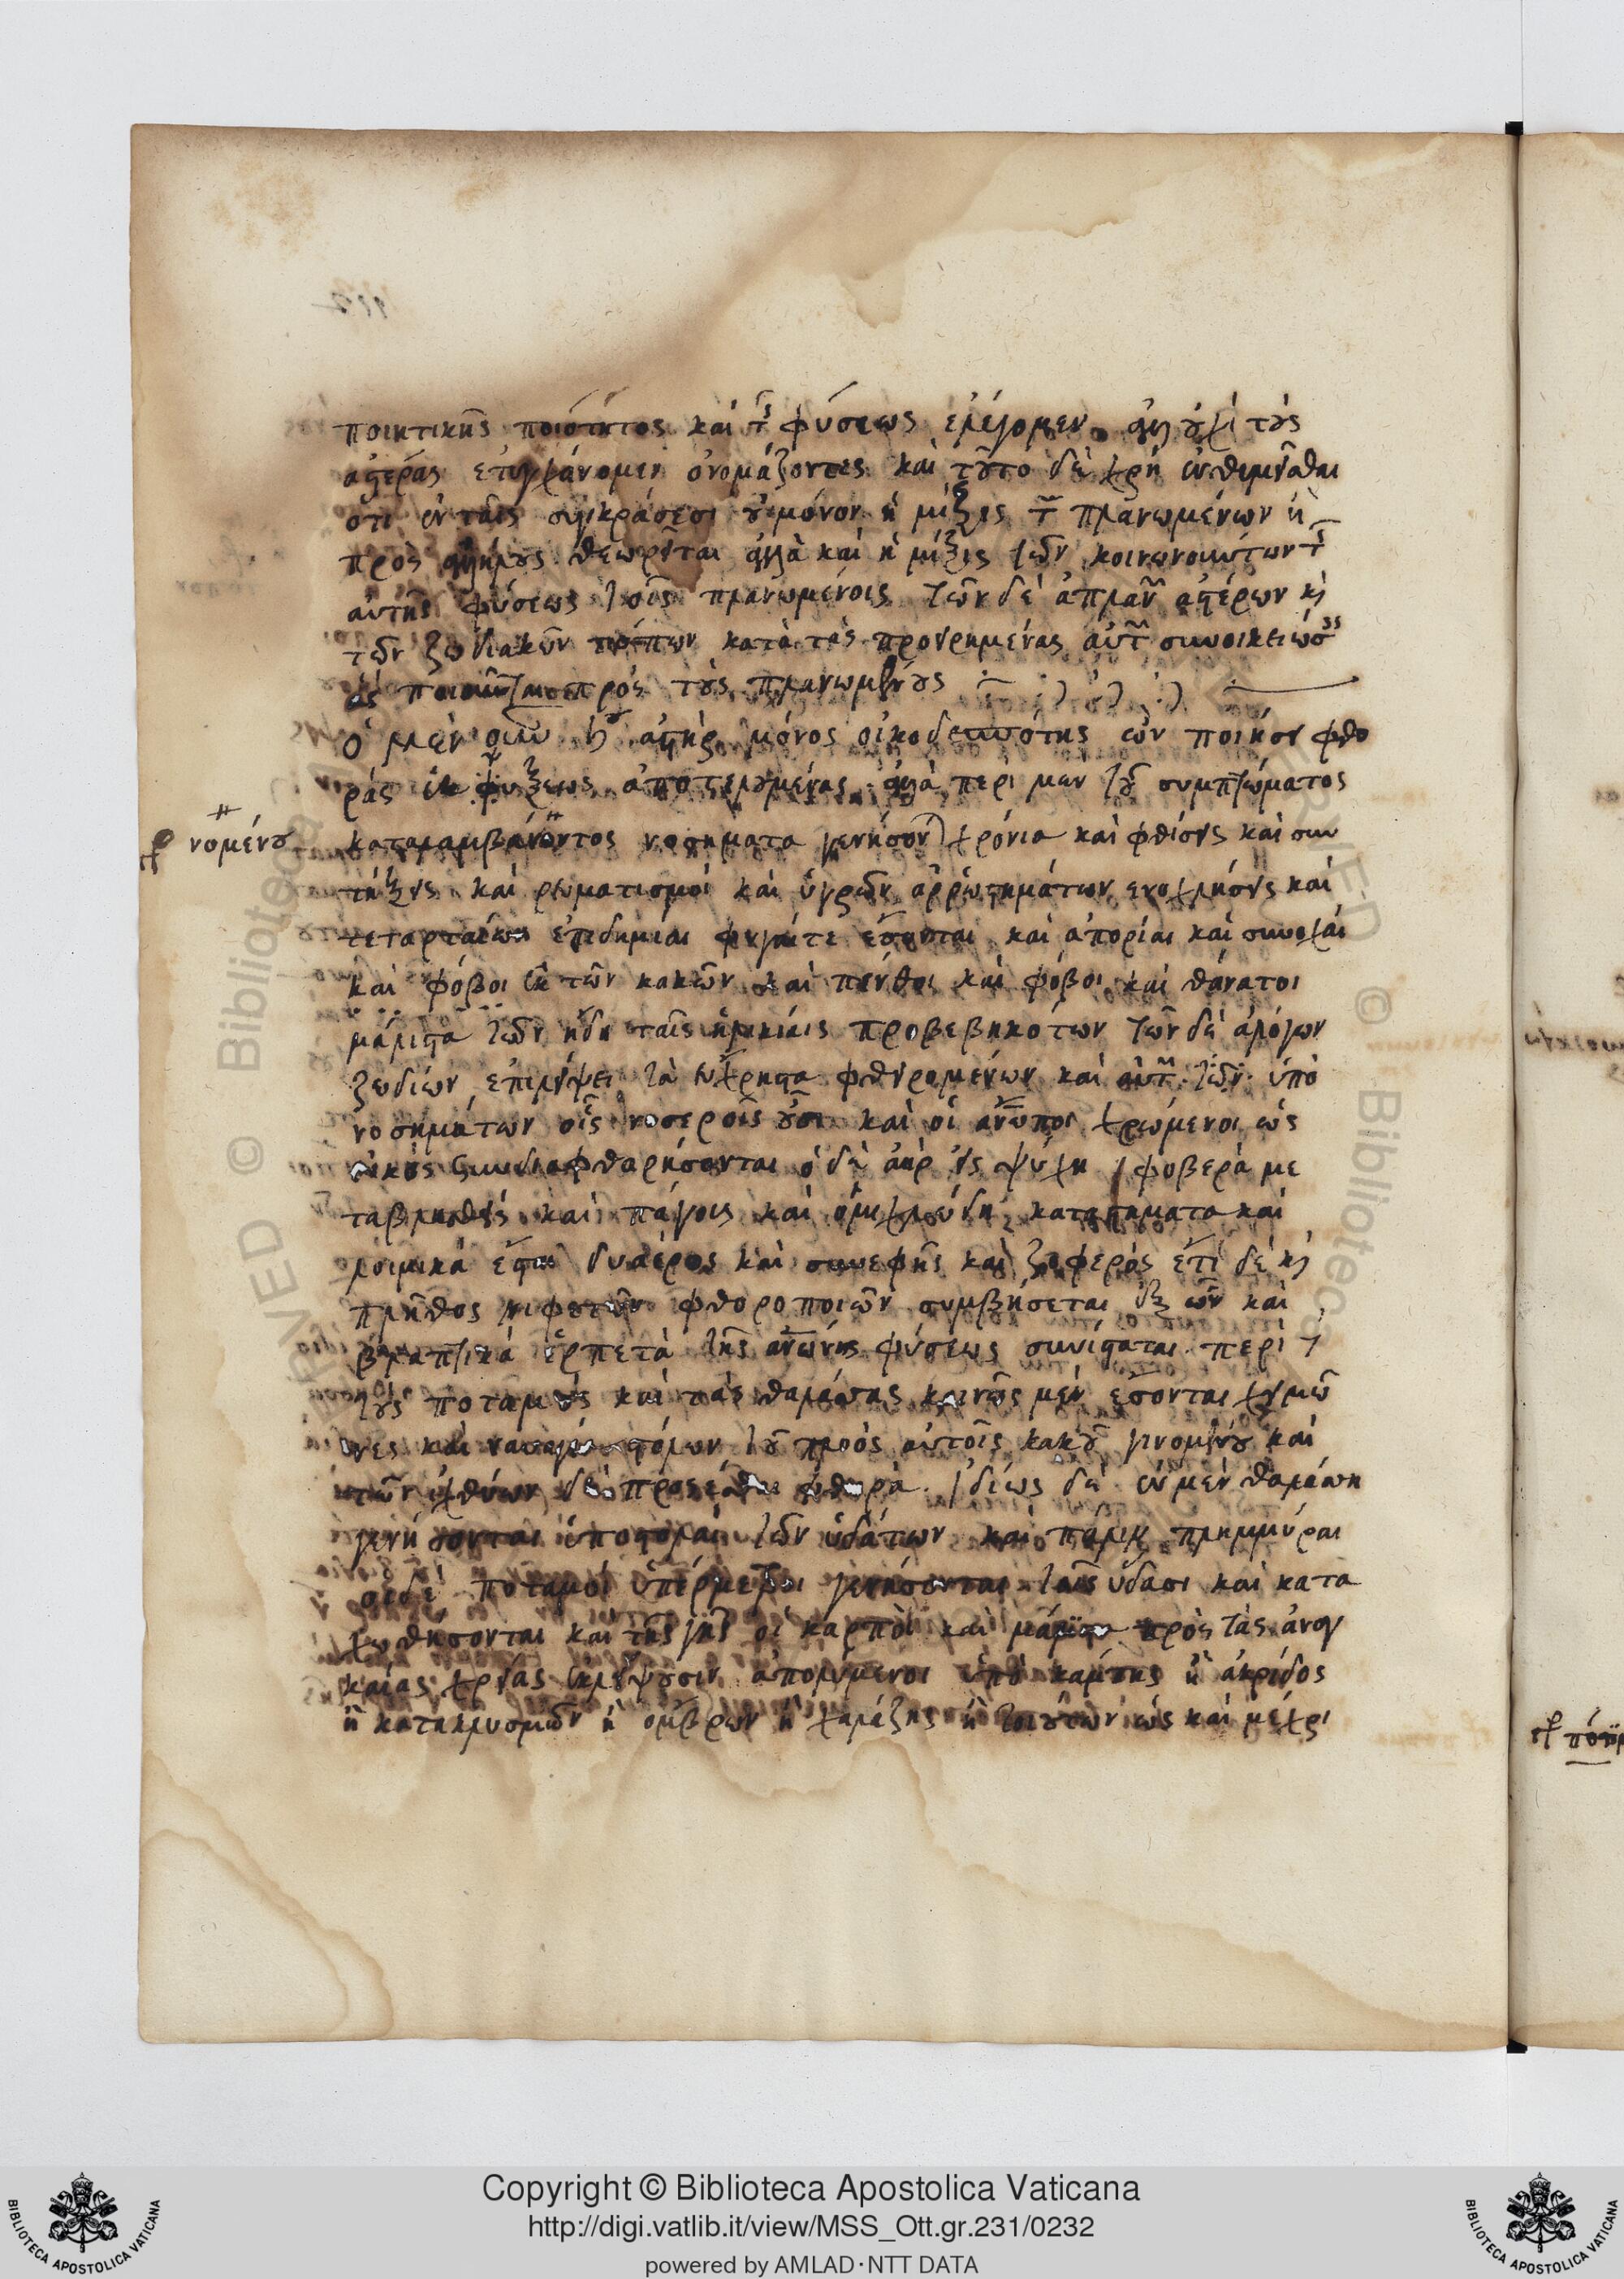 ποιητικῆς ποιότητος καὶ τῆς φύσεως ἐλέγομεν ἀλλ' οὐχὶ τοὺς
ἀστέρας ἐτυγχάνομεν ὀνομάζοντες καὶ τοῦτο δὲ χρὴ
ὅτι ἐν ταῖς συγκράσεσι οὐ μόνον ἡ μίξις τῶν πλανωμένων ἡ
πρὸς ἀλλήλους θεωρεῖται ἀλλὰ καὶ ἡ μίξις τῶν κοινωνούντων τῆς
αὐτῆς φύσεως τοῖς πλανωμένοις τῶν δὲ ἀπλανῶν ἀστέρων καὶ
τῶν ζωδιακῶν τόπων κατὰ τὰς προειρημένας αὐτῶν συνοικειώσεις
ἃς ποιοῦνται πρὸς τοὺς πλανωμένους
ὁ μὲν οὖν ♄ου ἀστὴρ μόνος οἰκοδεσπότης ὢν ποιήσει φθο
ρὰς ἐκ ψύξεως ἀποτελουμένας ἀλλὰ περὶ μὲν τοῦ συμπτώματος
γρ νομένου
καταλαμβάνοντος νοσήματα γενήσονται χρόνια καὶ φθίσεις καὶ συν
τήξεις καὶ ῥευματισμοὶ καὶ ὑγρῶν ἀρρωστημάτων ἐνοχλήσεις καὶ
τεταρταίων ἐπιδημίαι φυγαί τε ἔσονται καὶ ἀπορίαι καὶ συνοχαὶ
καὶ φόβοι ἐκ τῶν κακῶν καὶ πένθοι καὶ φόβοι καὶ θάνατοι
μάλιστα τῶν ἤδη ταῖς ἡλικίαις προβεβηκότων τῶν δὲ ἀλόγων
ζωδίων ἐπιλείψει τὰ εὔχρηστα φθειρομένων καὶ αὐτῶν τῶν ὑπὸ
νοσημάτων οἷς νοσεροῖς οὖσι καὶ οἱ ἄνθρωποι χρώμενοι ὡς
εἰκὸς συνδιαφθαρήσονται ὁ δὲ ἀὴρ εἰς ψύχη φοβερὰ με
ταβληθεὶς καὶ πάγοις καὶ ὀμιχλώδη καταστήματα καὶ
λοιμικὰ ἔσται δυσάερος καὶ συννεφὴς καὶ ζοφερὸς ἔτι δὲ καὶ
πλῆθος νιφετῶν φθοροποιῶν συμβήσεται ἐξ ὧν καὶ
βλαπτικὰ ἑρπετὰ τῆς ἀνθρωπίνης φύσεως συνίσταται περὶ
τοὺς ποταμοὺς καὶ τὰς θαλάσσας κοινῶς μὲν ἔσονται χειμῶ
νες καὶ ναυαγία στόλων τοῦ πλοὸς αὐτοῖς κακοῦ γινομένου καὶ
τῶν ἰχθύων δὲ προσέσται φθορὰ ἰδίως δὲ ἐν μὲν θαλάσσῃ
γενήσονται ὑποστολαὶ τῶν ὑδάτων καὶ πάλιν πλημμύραι
οἱ δὲ ποταμοὶ ὑπέρμετροι γενήσονται τοῖς ὕδασι καὶ κατα
χωθήσονται καὶ τῆς γῆς οἱ καρποὶ καὶ μάλιστα πρὸς τὰς ἀναγ
καίας χρείας ἐκλείψουσιν ἀπολλύμενοι ὑπὸ κάμπης ἢ ἀκρίδος
ἢ κατακλυσμῶν ἢ ὄμβρων ἢ χαλάζης ἢ τοιούτων ὡς καὶ μέχρι
Copyright © Biblioteca Apostolica Vaticana
http://digi.vatlib.it/view/MSS_Ott.gr.231/0232
powered by AMLAD·NTT DATA
BIBLIOTECA APOSTOLICA VATICANA
BIBLIOTECA APOSTOLICA VATICANA